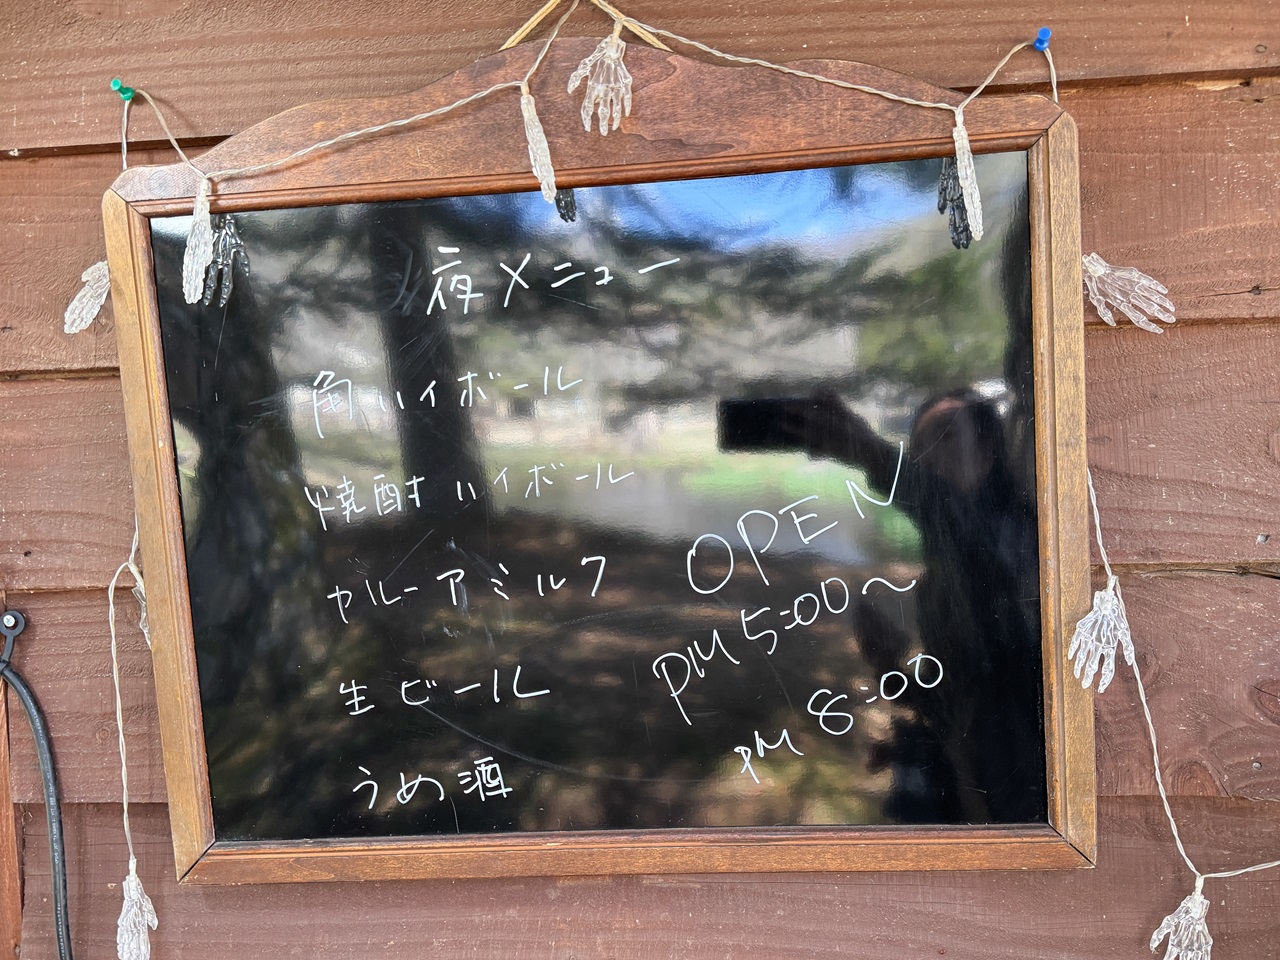 夜メニュー
角ハイボール
焼酎ハイボール
カルーアミルク
生ビール
うめ酒
OPEN
PM 5:00～
PM 8:00